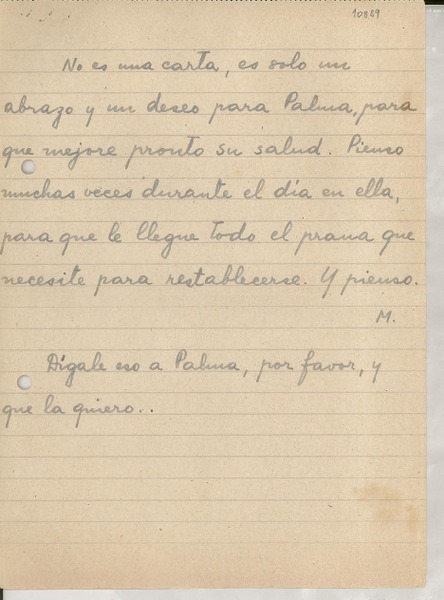 10889
No es una carta, es solo un
abrazo y un deseo para Palma, para
que mejore pronto su salud. Pienso
muchas veces durante el día en ella,
para que le llegue todo el prana que
necesite para restablecerse. Y pienso.
M.
Dígale eso a Palma, por favor, y
que la quiero..